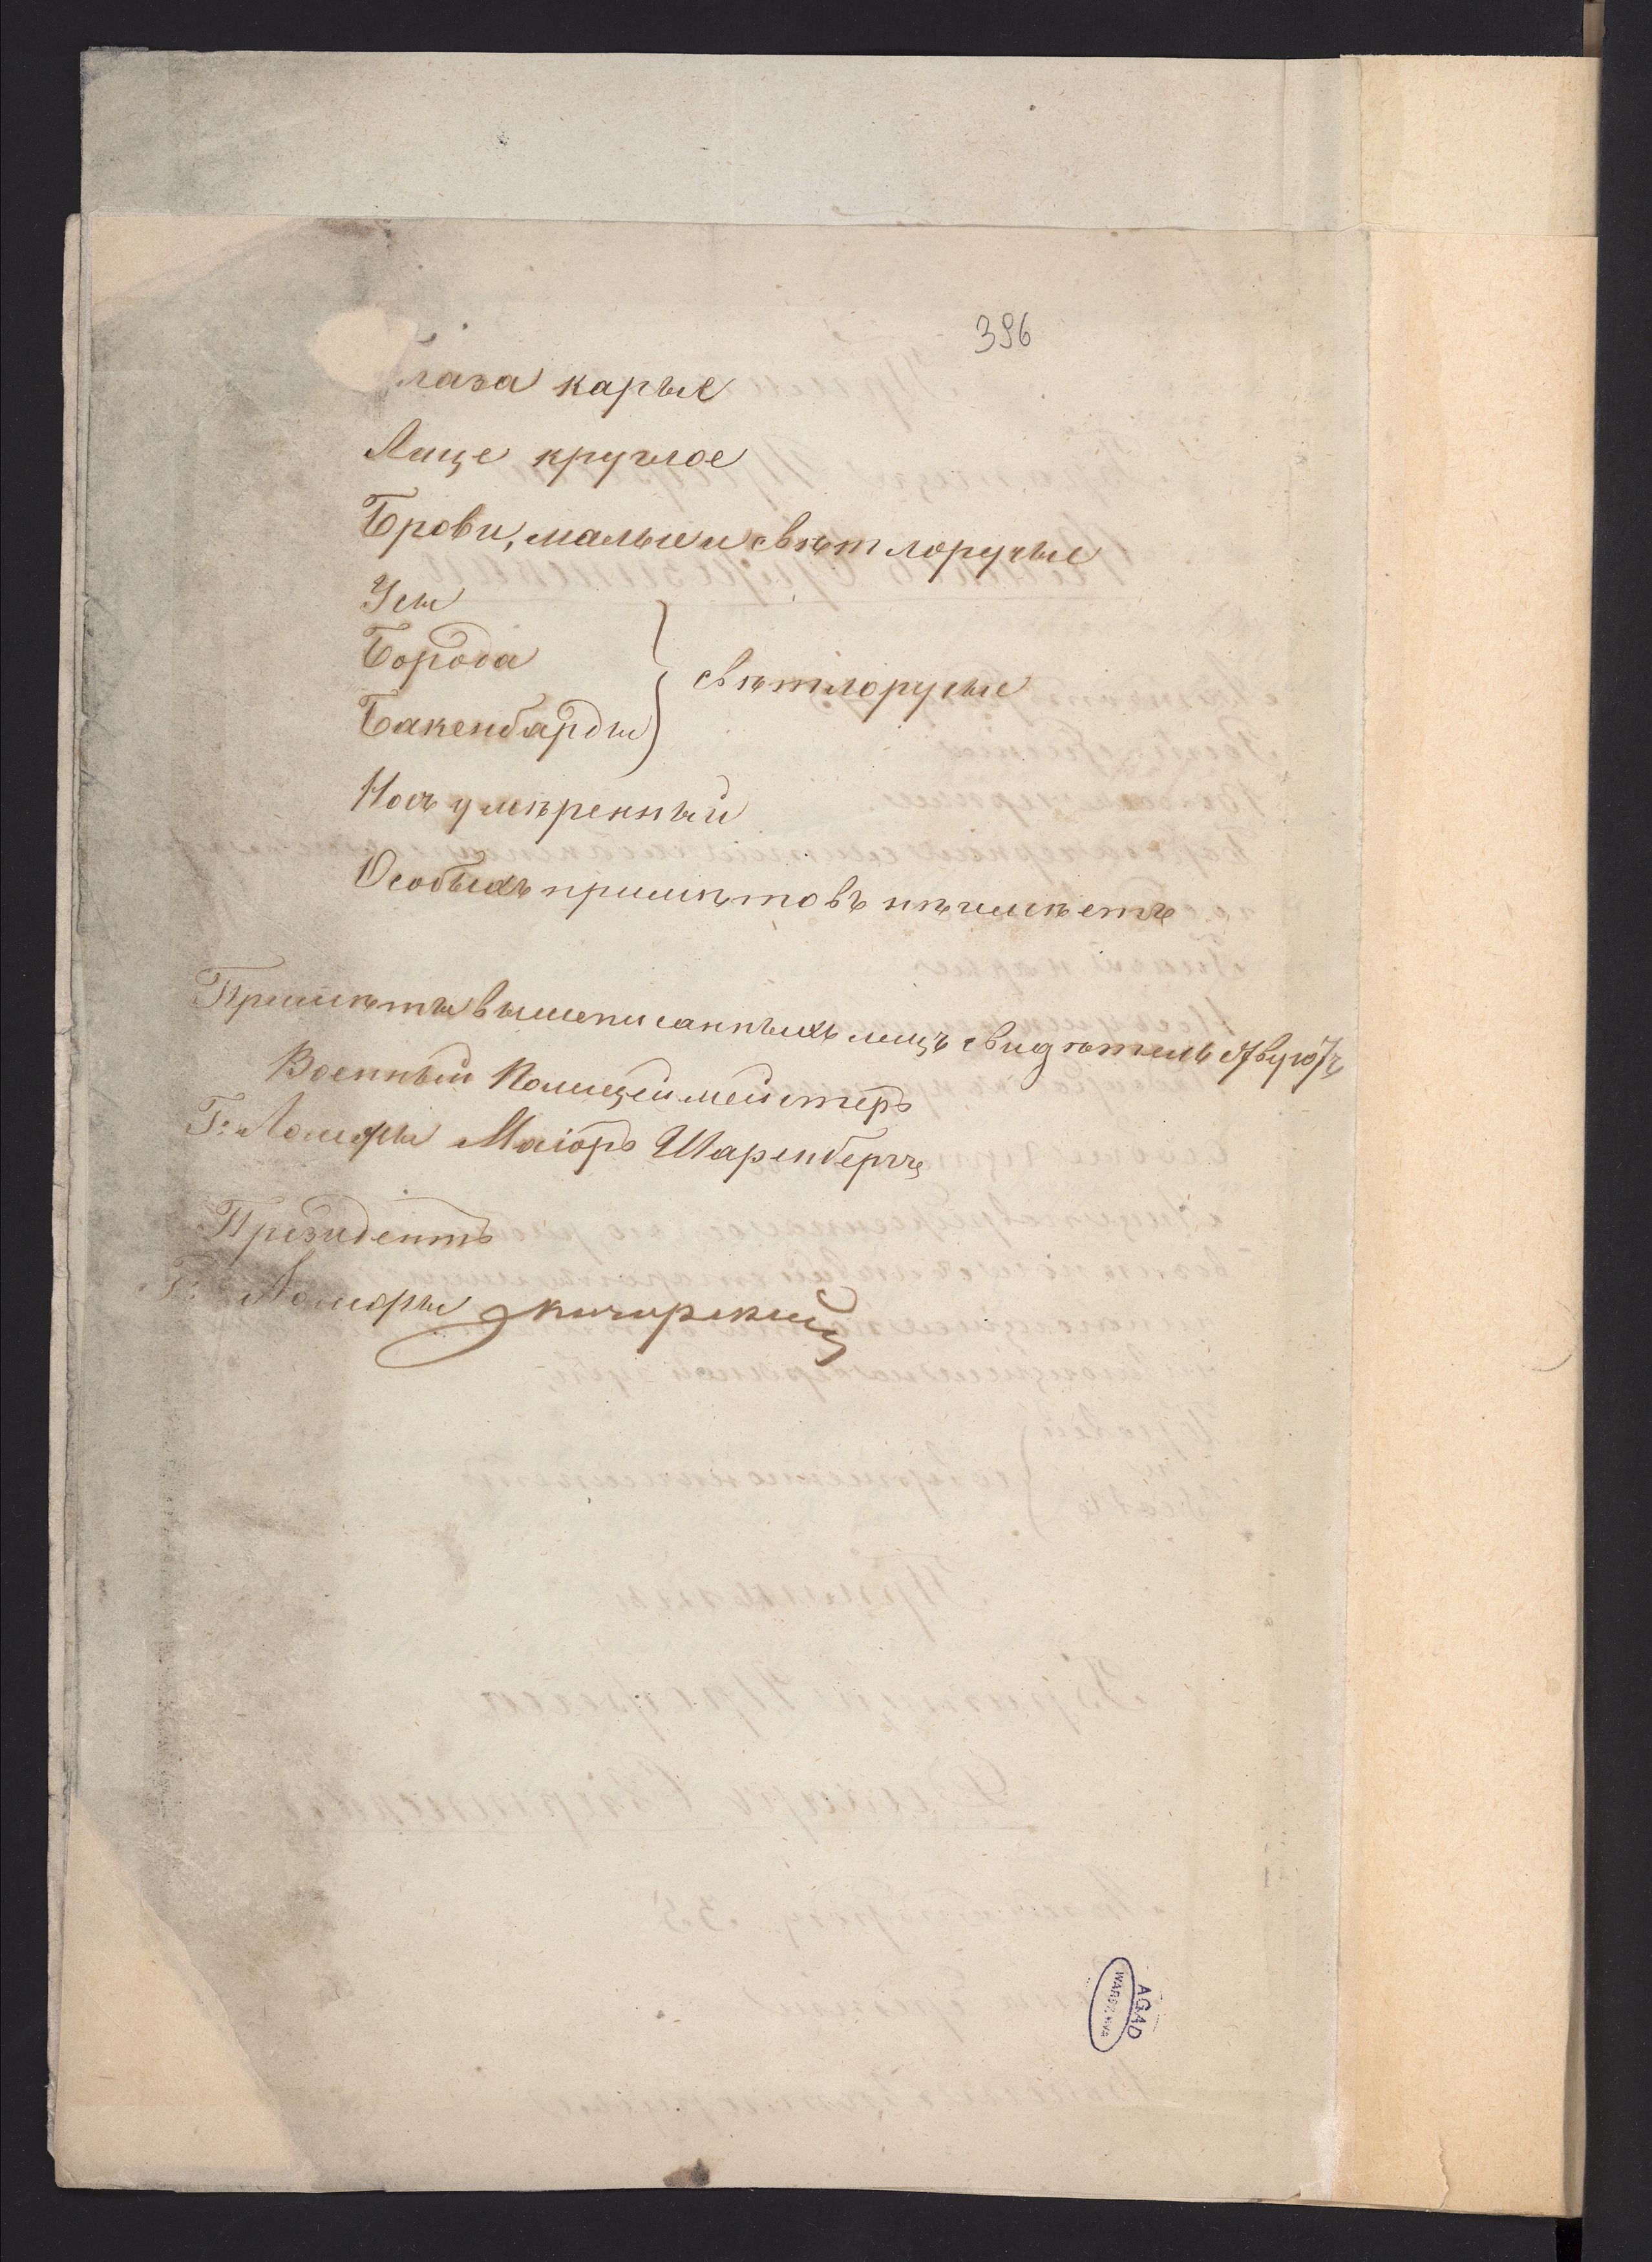 396
лаза карые
Лице круглое
Брови, малыи и свѣтлорусые
Усы
Борода
Бакенбарды
свѣтлорусые
Носъ умѣренный
Особыхъ примѣтовъ нѣимѣетъ
Примѣты вышеписанныхъ лицъ свидѣтель
Военный Полицеймейстеръ
Г: Ломжы Маіоръ Шаренбергъ
Президентъ
Г: Ломжы
AGAD
WARSZAWA